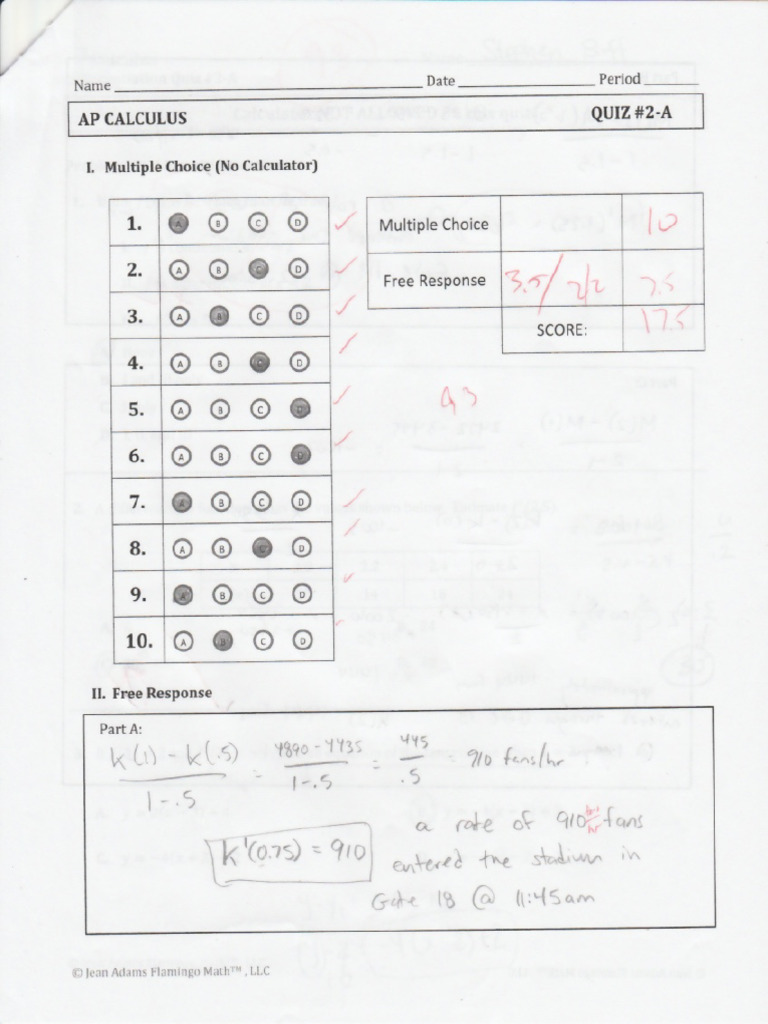 Name Date Period
AP CALCULUS QUIZ #2-A
I. Multiple Choice (No Calculator)
1. A B C D
2. A B C D
3. A B C D
4. A B C D
5. A B C D
6. A B C D
7. A B C D
8. A B C D
9. A B C D
10. A B C D
Multiple Choice 10
Free Response 3.5/ 2/2 7.5
SCORE: 17.5
93
II. Free Response
Part A:
k(1) - k(.5) / 1-.5 = 4890-4435 / 1-.5 = 445 / .5 = 910 fans/hr
a rate of 910 fans
hr
k'(0.75) = 910
entered the stadium in
Gate 18 @ 11:45am
© Jean Adams Flamingo Math™, LLC